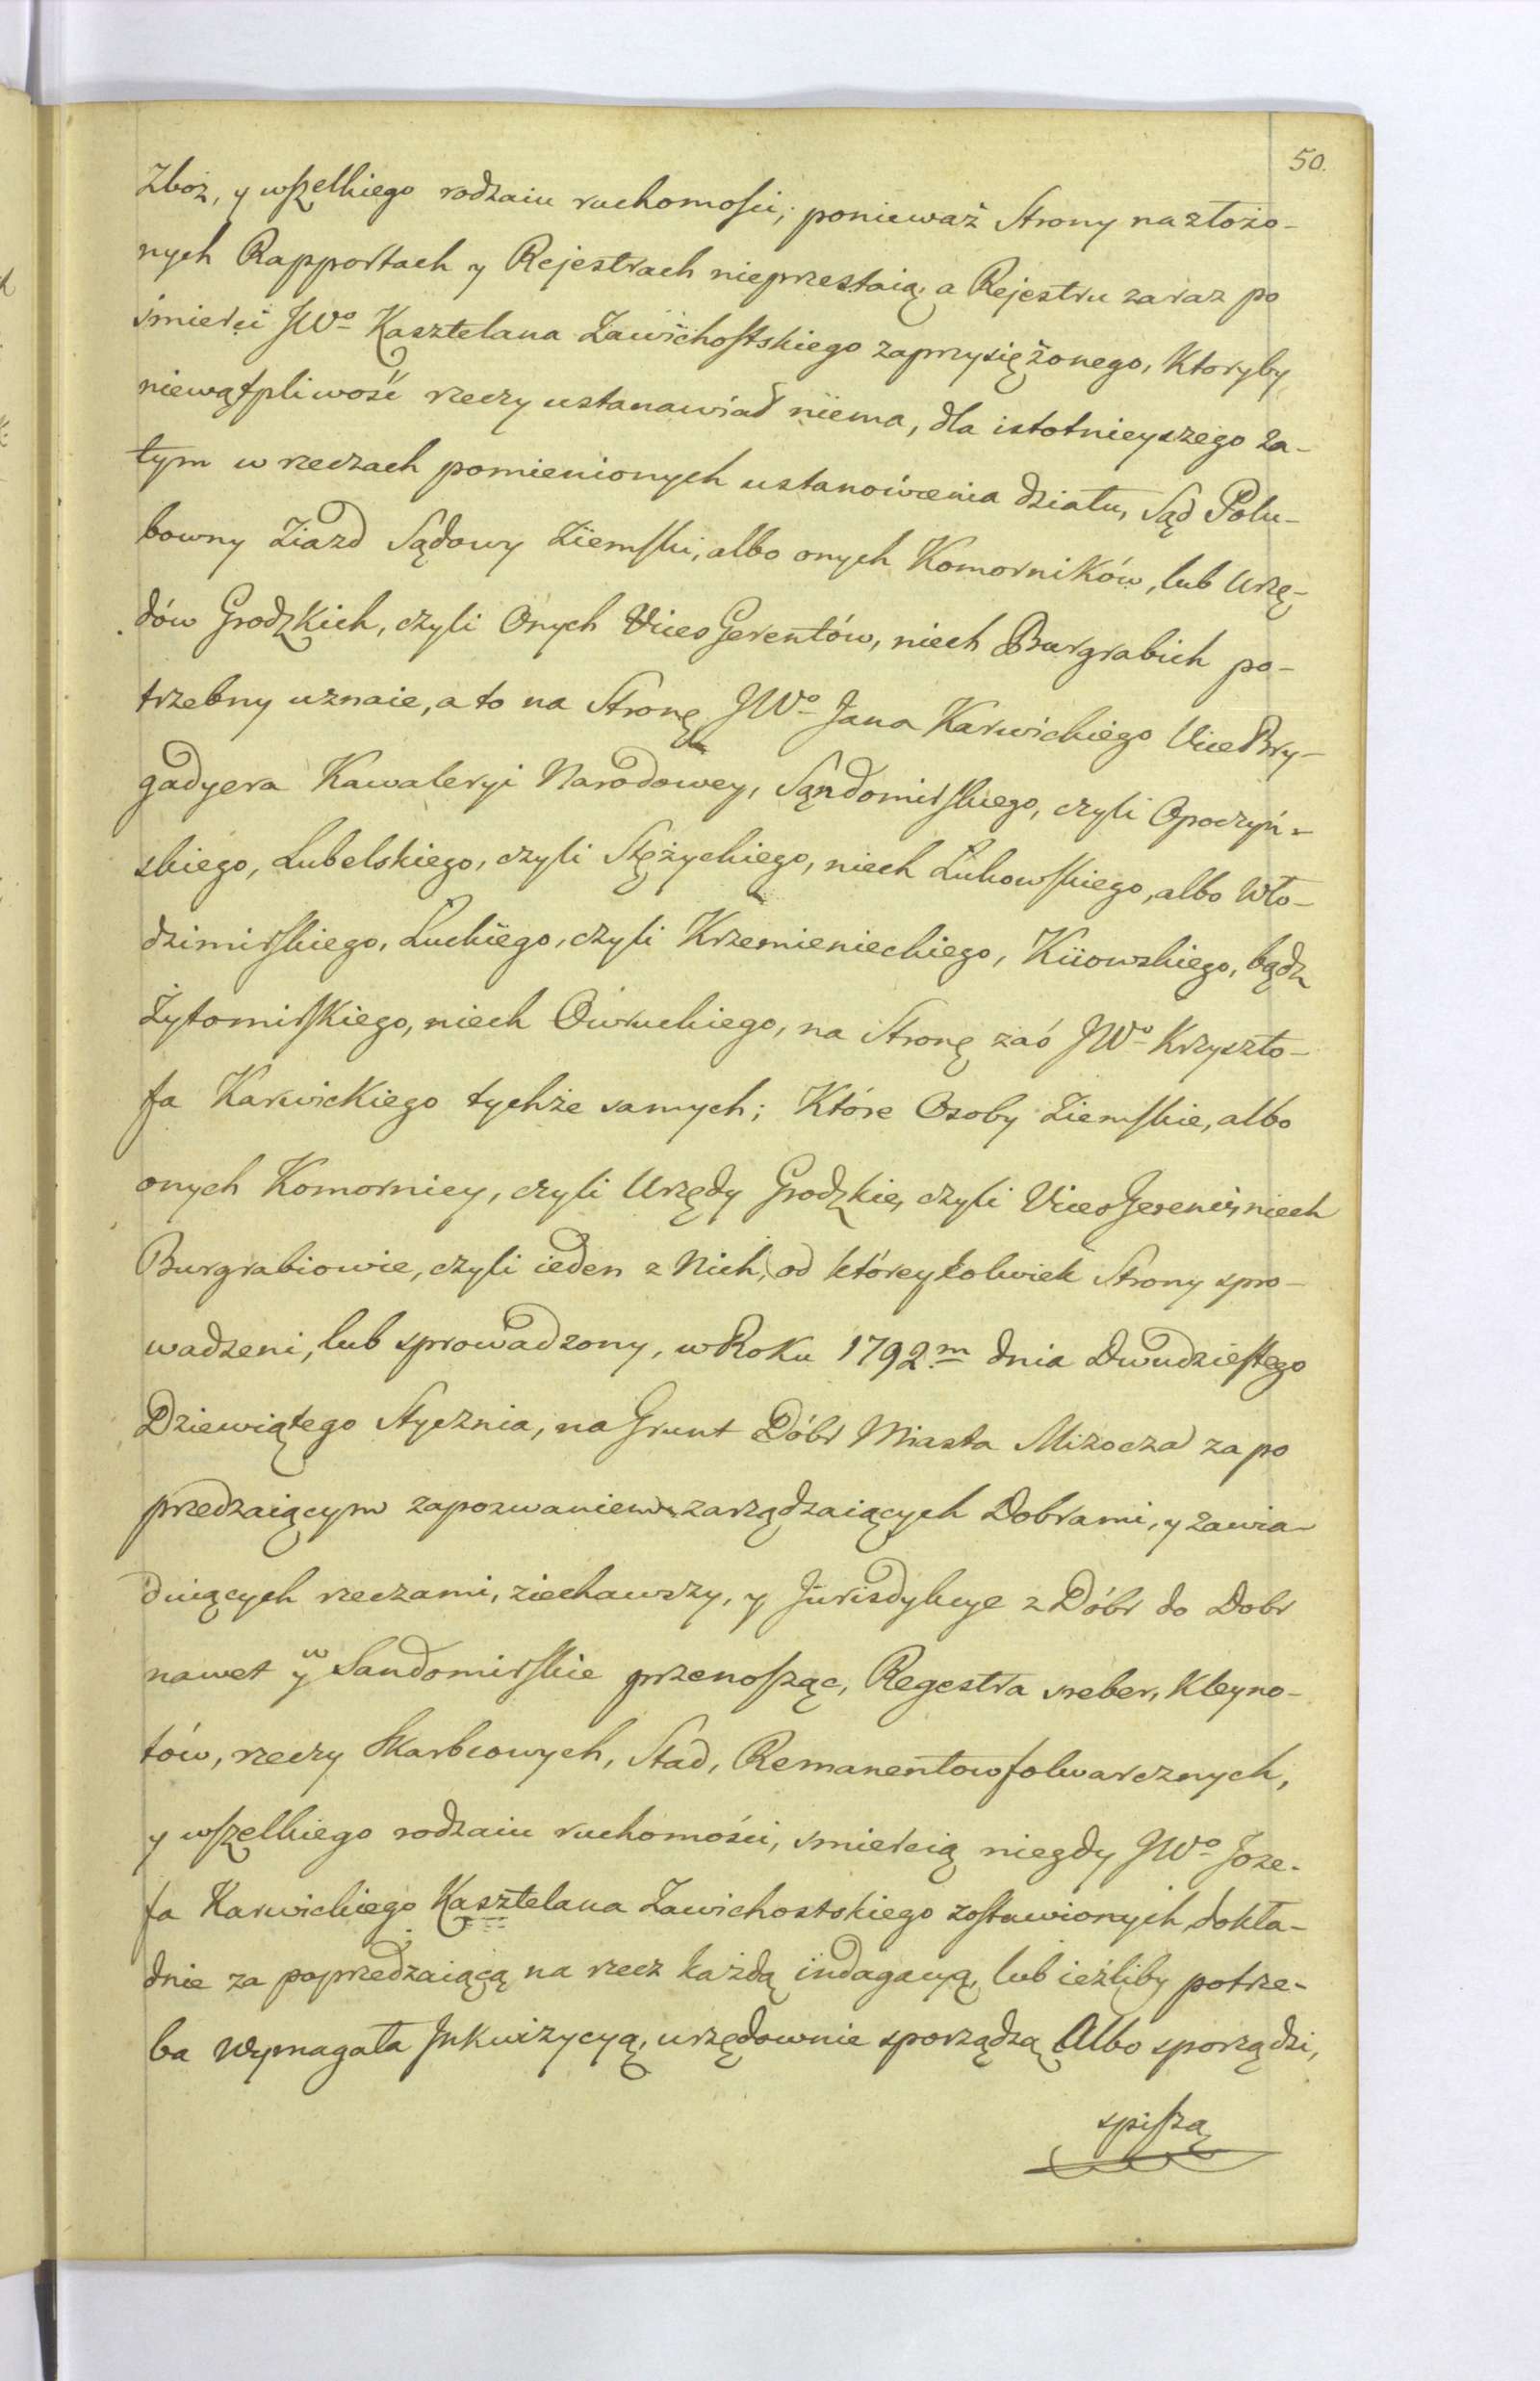 50.
Zboz, y wszelkiego rodzaiu ruchomości; ponieważ Strony na złożo-
nych Rapportach y Rejestrach nieprzestaią, a Rejestru zaraz po
śmierci JWo Kasztelana Zawichostskiego zaprzysiężonego, Ktoryby
niewątpliwość rzeczy ustanawiał niema, dla istotnieyszego za-
tym w rzeczach pomienionych ustanowienia działu, Sąd Polu-
bowny Ziazd Sądowy Ziemski, albo onych Komorników, lub Urzę-
dów Grodzkich, czyli Onych Vices Gerentów, niech Burgrabich po-
trzebny uznaie, a to na Stronę JWo Jana Karwickiego Vice Bry-
gadyera Kawaleryi Narodowey, Sandomirskiego, czyli Opoczyń-
skiego, Lubelskiego, czyli Stężyckiego, niech Łukowskiego, albo Wło-
dzimirskiego, Łuckiego, czyli Krzemienieckiego, Kiiowskiego, bądz
Żytomirskiego, niech Owruckiego, na Stronę zaś JWo Krzyszto-
fa Karwickiego tychże samych; Które Osoby Ziemskie, albo
onych Komornicy, czyli Urzędy Grodzkie, czyli Vices Gerenci, niech
Burgrabiowie, czyli ieden z Nich, od któreykolwiek Strony spro-
wadzeni, lub sprowadzony, w Roku 1792m dnia Dwudziestego
Dziewiątego Stycznia, na Grunt Dóbr Miasta Mizocza za po
przedzaiącym zapozwaniem zarządzaiących Dobrami, y zawia-
duiących rzeczami, ziechawszy, y Jurisdykcye z Dóbr do Dobr
nawet w Sandomirskie przenosząc, Regestra sreber, Kleyno-
tów, rzeczy Skarbcowych, Stad, Remanentow folwarcznych,
y wszelkiego rodzaiu ruchomości, smiercią niegdy JWo Joze-
fa Karwickiego Kasztelana Zawichostskiego zostawionych, dokła-
dnie za poprzedzaiącą na rzecz każdą indagacyą, lub ieżliby potrze-
ba wymagała Inkwizycyą, urzędownie sporządzą Albo sporządzi,
spiszą